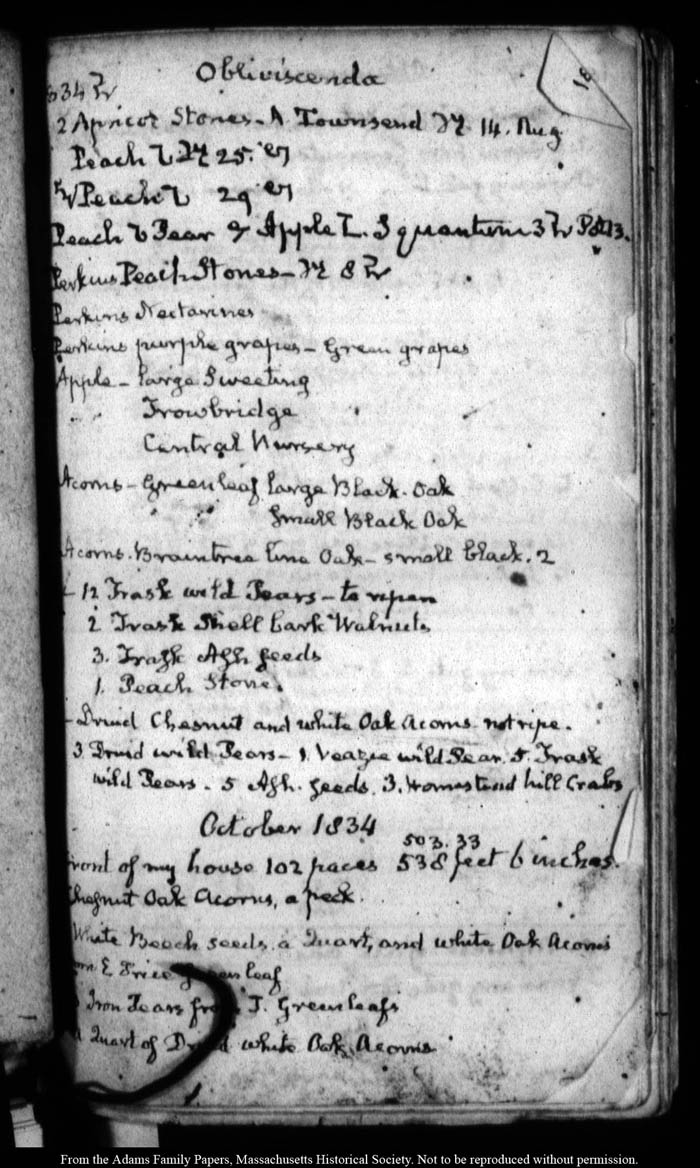 Obliviscenda
18
2 Apricot Stones - A Townsend 14. Aug
Peach 25.
Peach 29
Peach Pear & Apple Squantum 3
Perkins Peach Stones - 8
Perkins Nectarines
Perkins purple grapes - Green grapes
Apple - large Sweeting
Trowbridge
Central Nursery
Acorns - Greenleaf large Black. Oak
Small Black Oak
Acorns. Braintree Oak - small black. 2
12 Trask wild Pears - to ripen
2 Trask Shell bark Walnuts
3. Trask Ash seeds
1. Peach Stone.
- Druid Chesnut and white Oak Acorns not ripe.
3 Druid wild Pears - 1. Veazie wild Pear. 5. Trask
wild Pears - 5 Ash. seeds. 3. Homestead hill Crabs
October 1834
503. 33
Front of my house 102 paces 538 feet 6 inches.
Chesnut Oak Acorns, a peck.
White Beech seeds a Quart, and white Oak Acorns
Greenleaf
Iron Pears from T. Greenleafs
Quart of Druid white Oak Acorns
From the Adams Family Papers, Massachusetts Historical Society. Not to be reproduced without permission.